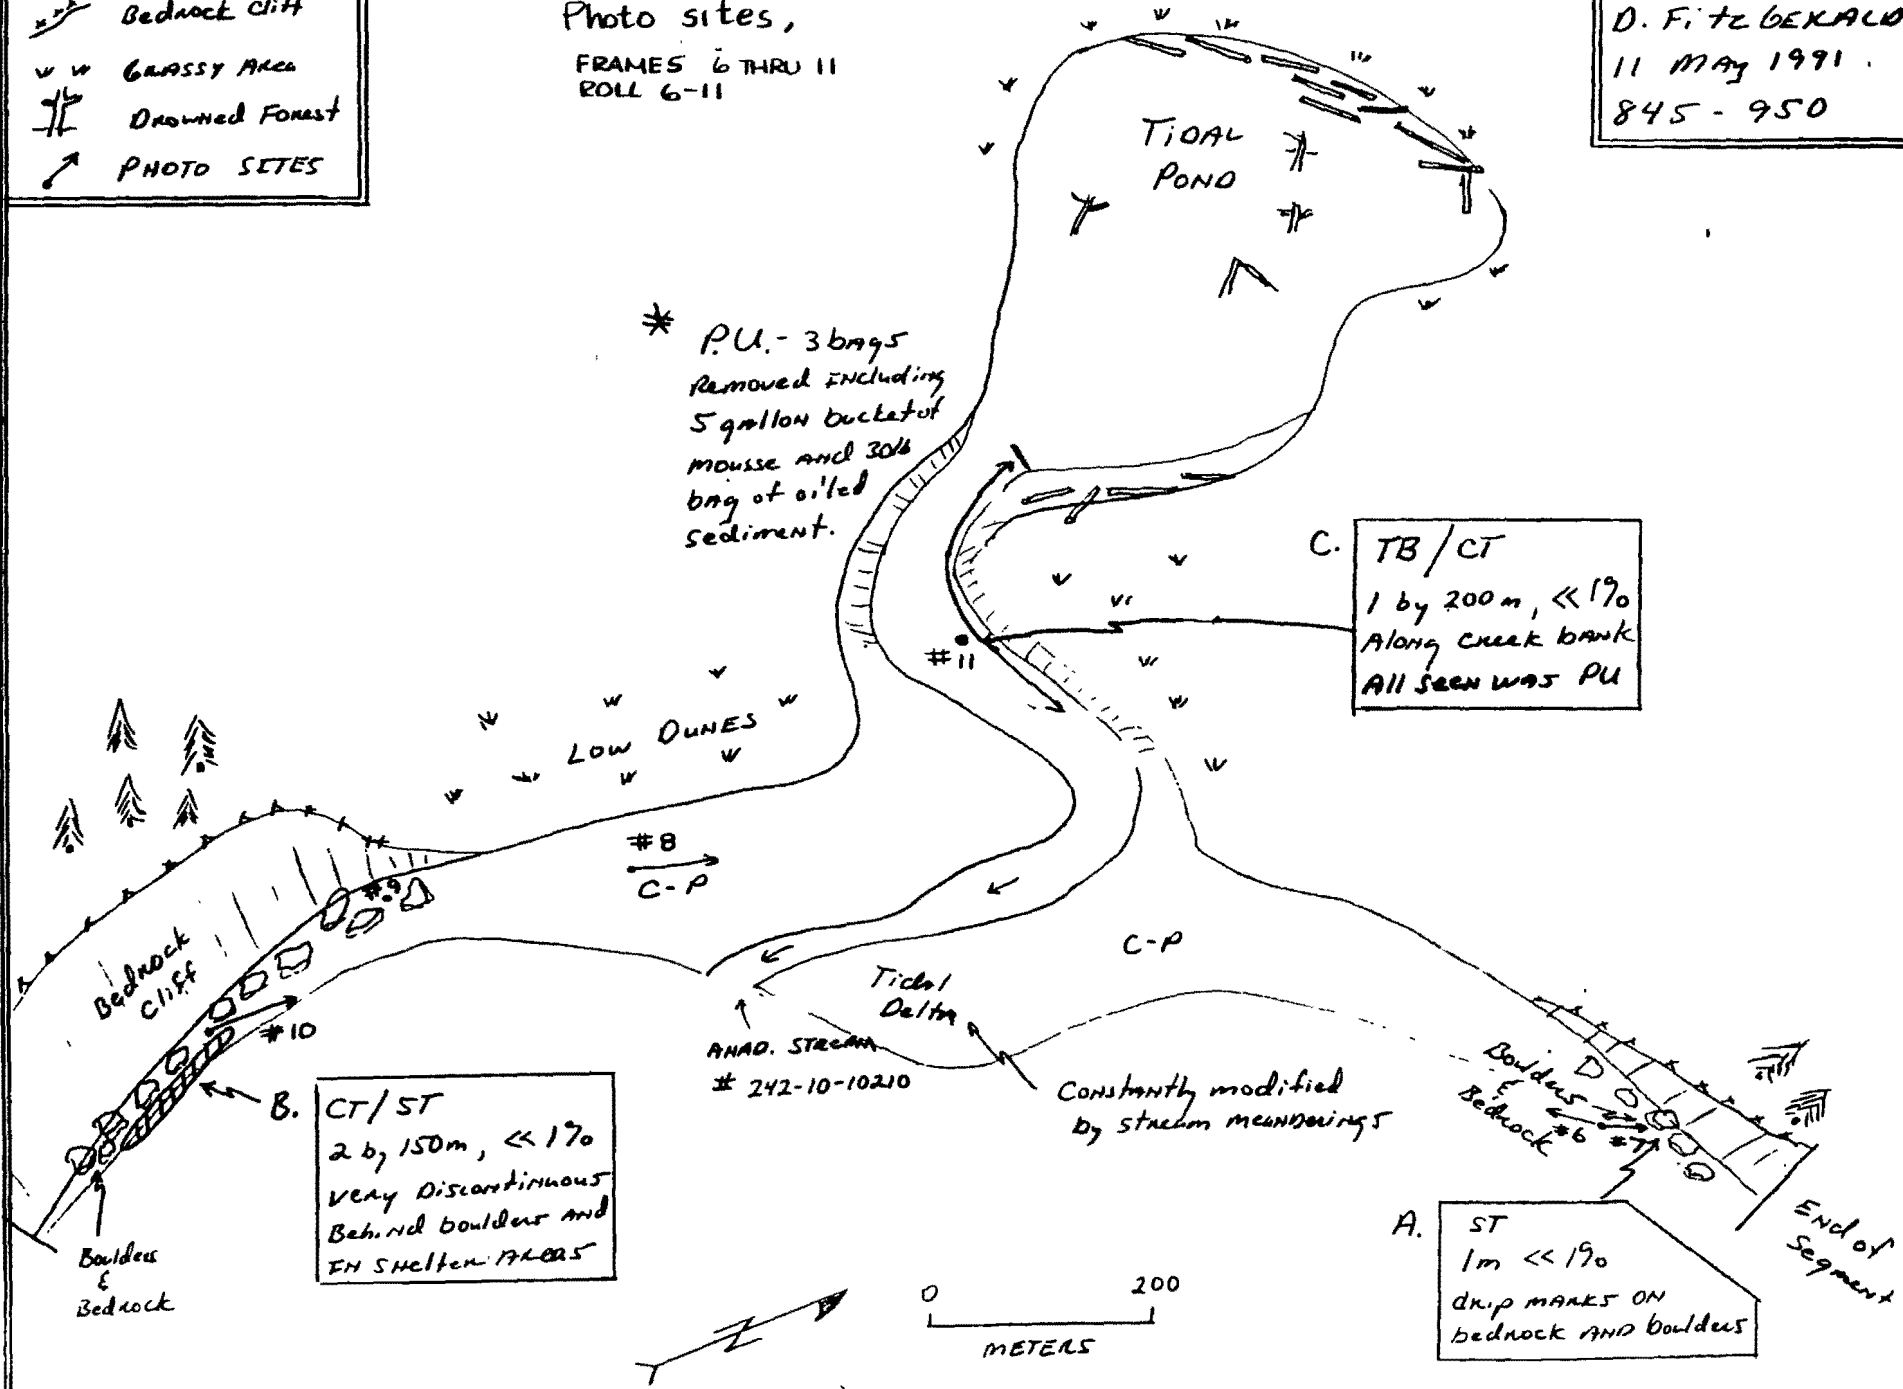 Bedrock Cliff
GRASSY AREA
Drowned Forest
PHOTO SITES
Photo sites,
FRAMES 6 THRU 11
ROLL 6-11
D. FitzGERALD
11 MAY 1991.
845 - 950
TIDAL
POND
* P.U.- 3 bags
Removed Including
5 gallon bucket of
mousse and 30lb
bag of oiled
sediment.
C. TB/CT
1 by 200m, << 1%
Along creek bank
All seen was PU
#11
LOW DUNES
#8
C-P
#9
Bedrock
Cliff
#10
C-P
Tidal
Delta
ANAD. STREAM
# 242-10-10210
Constantly modified
by stream meanderings
Boulders
&
Bedrock
#6 #7
B. CT/ST
2 by 150m, << 1%
very Discontinuous
Behind boulders AND
IN Shelter Areas
Boulders
&
Bedrock
A. ST
1m << 1%
drip marks ON
bedrock AND boulders
End of
Segment
N
0 200
METERS